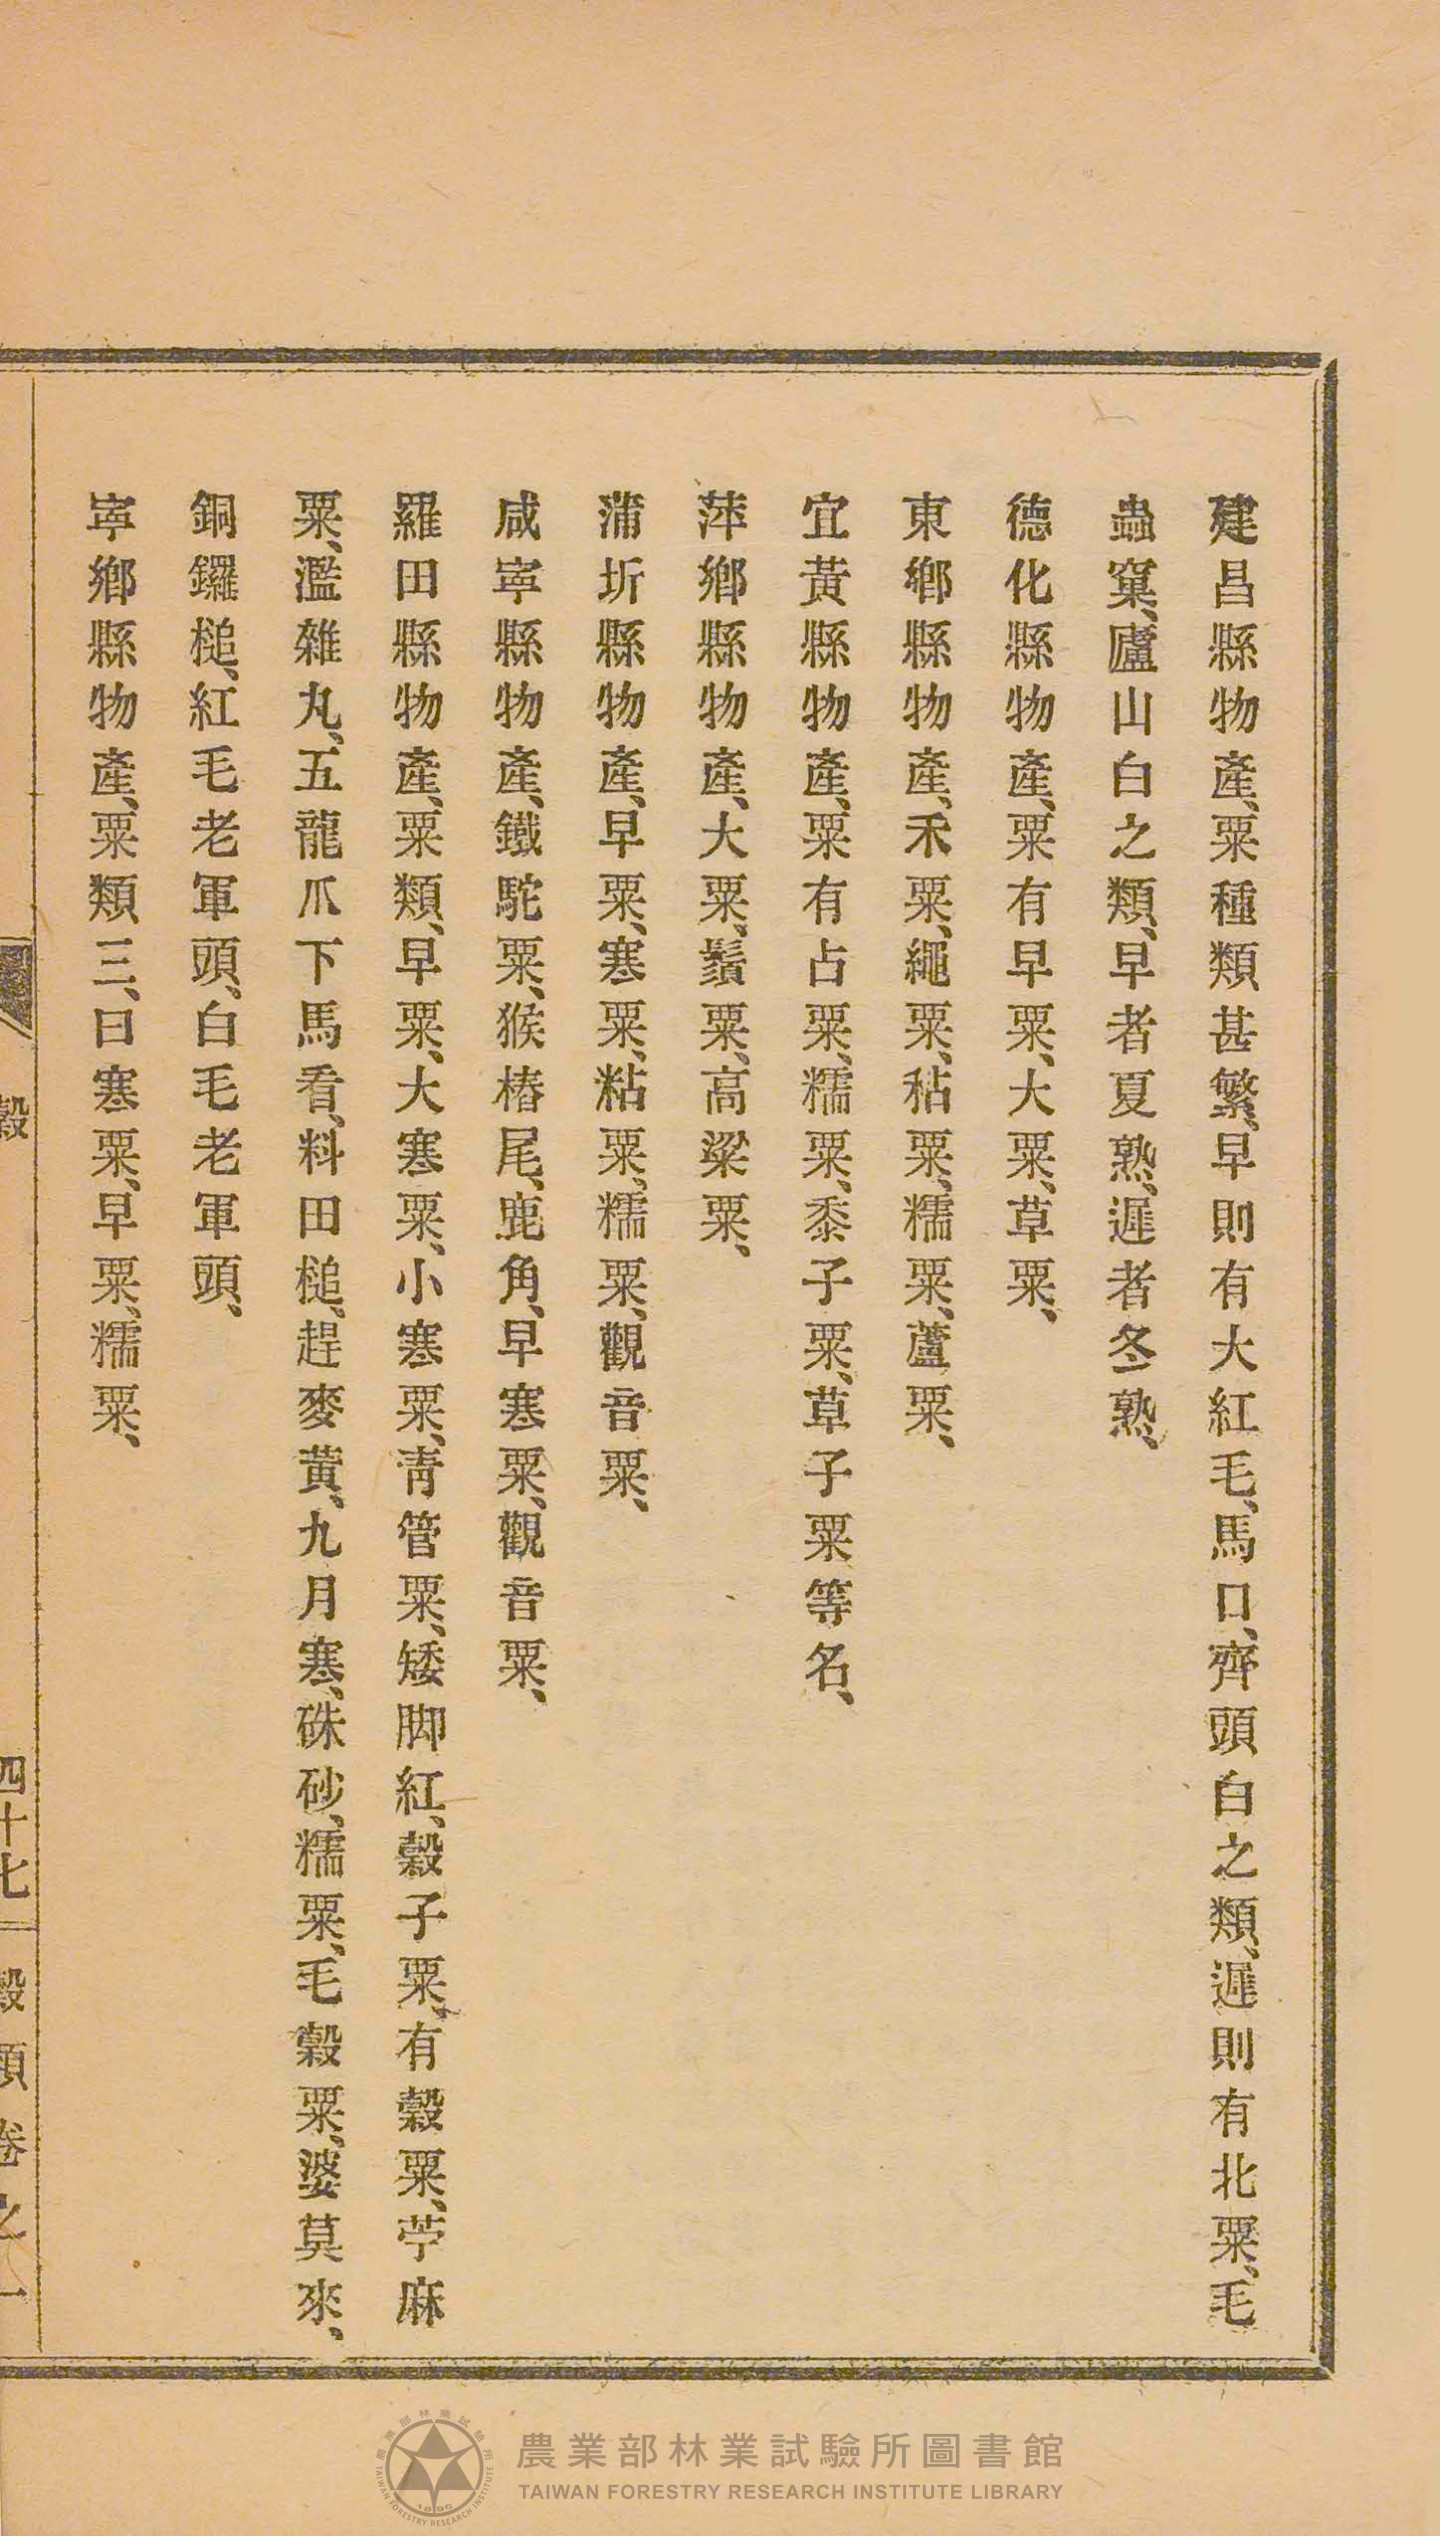 建昌縣物產、粟種類甚繁、早則有大紅毛、馬口、齊頭白之類、遲則有北粟、毛
蟲窠、廬山白之類、早者夏熟、遲者冬熟、
德化縣物產、粟有早粟、大粟、草粟、
東鄉縣物產、禾粟、繩粟、秥粟、糯粟、蘆粟、
宜黃縣物產、粟有占粟、糯粟、黍子粟、草子粟等名、
萍鄉縣物產、大粟、鬚粟、高粱粟、
蒲圻縣物產、早粟、寒粟、粘粟、糯粟、觀音粟、
咸寧縣物產、鐵駝粟、猴樁尾、鹿角、早寒粟、觀音粟、
羅田縣物產、粟類、早粟、大寒粟、小寒粟、靑管粟、矮脚紅、穀子粟、有穀粟、苧麻
粟、濫雜丸、五龍爪下馬看、料田槌、趕麥黃、九月寒、硃砂、糯粟、毛穀粟、婆莫來、
銅鑼槌、紅毛老軍頭、白毛老軍頭、
寧鄉縣物產、粟類三、曰寒粟、早粟、糯粟、
穀
四十七
穀類卷之一
農業部林業試驗所圖書館
TAIWAN FORESTRY RESEARCH INSTITUTE LIBRARY
農業部林業試驗所
TAIWAN FORESTRY RESEARCH INSTITUTE
1895